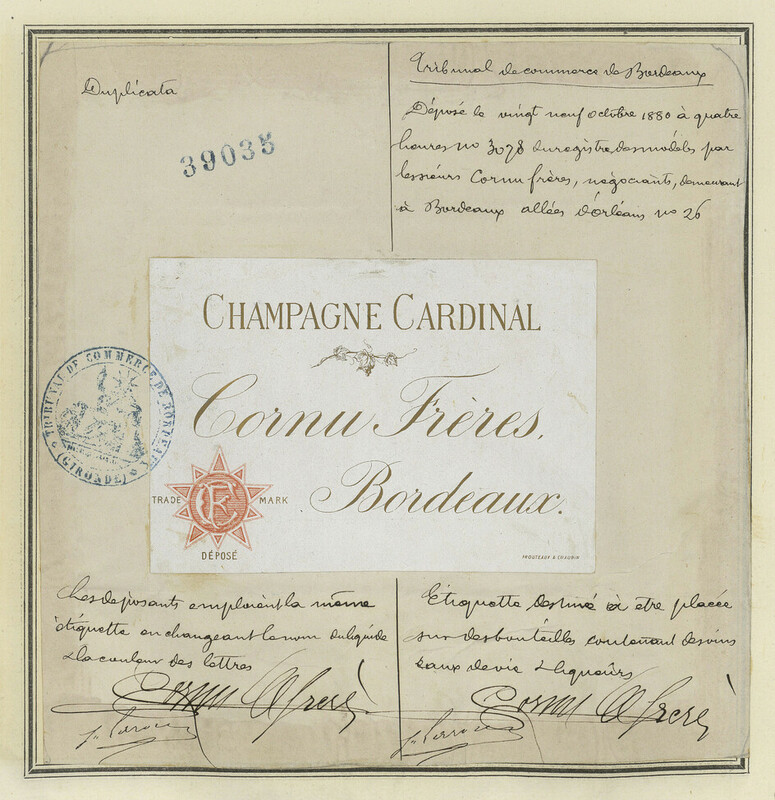 Duplicata
39035
Tribunal de commerce de Bordeaux
Déposé le vingt neuf octobre 1880 à quatre
heures no 3078 du registre des modèles par
les sieurs Cornu frères, négociants, demeurant
à Bordeaux allées d'orléans no 26
CHAMPAGNE CARDINAL
Cornu Frères.
Bordeaux.
TRIBUNAL DE COMMERCE DE BORDEAUX
(GIRONDE)
TRADE MARK
CF
DÉPOSÉ
Les déposants emploient la même
étiquette en changeant le nom du liquide
& la couleur des lettres
Cornu frère
Étiquette destiné à être placée
sur des bouteilles contenant des vins
eaux de vie & liqueurs
Cornu frère